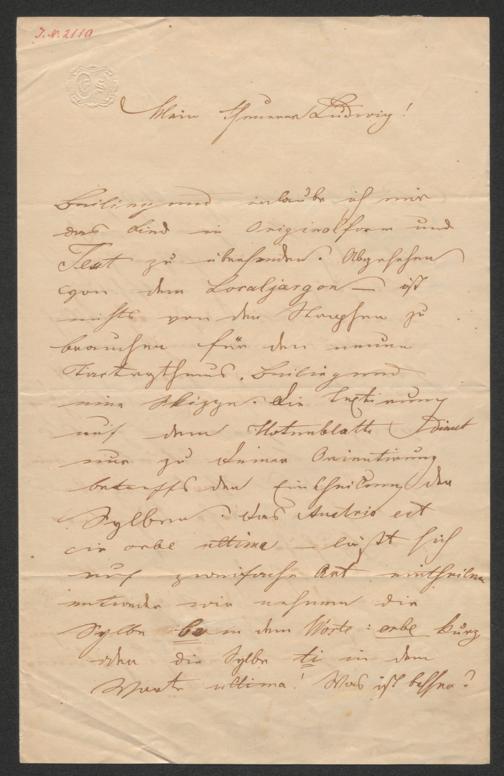 J. N. 2110
Mein theurer Ludwig!
Beiliegend erlaube ich mir
das Lied in Originalform und
Text zu übersenden. Abgesehen
von dem Localjargon – ist
nichts von den Strophen zu
brauchen für den neuen
Beiliegend
eine Skizze. Die Textirung
auf dem Notenblatte dient
nur zu Deiner Orientirung
betreffs der Eintheilung der
Sylben. Das Austria est
in orbe ultima – läßt sich
auf zweifache Art eintheilen
entweder wir nehmen die
Sylbe be in dem Worte: orbe kurz
oder die Sylbe ti in dem
Worte ultima! Was ist besser?